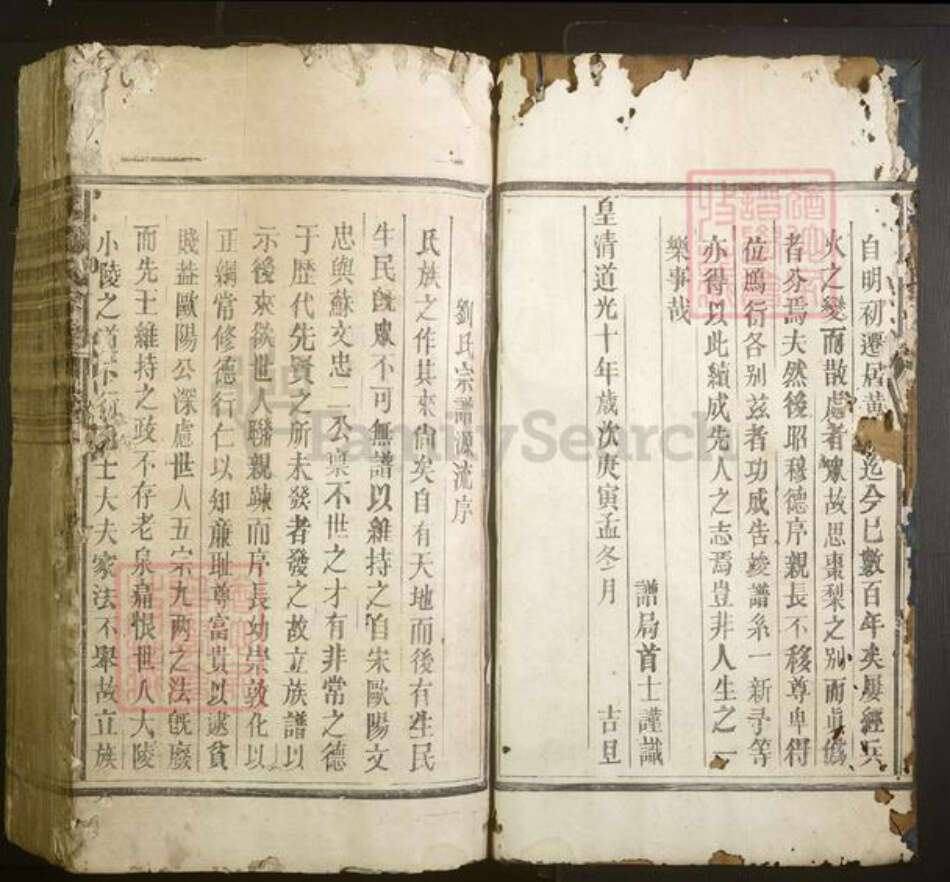 自明初遷居黄 迄今已數百年矣屡經兵
火之變而散處者眾故思棗梨之别而真僞
者分焉夫然後昭穆德序親長不移尊卑得
位鴈衍各别兹者功成告竣譜系一新予等
亦得以此續成先人之志焉豈非人生之一
樂事哉
譜局首士謹識
皇清道光十年歲次庚寅孟冬月 吉旦
劉氏宗譜源流序
氏族之作其來尚矣自有天地而後有生民
生民旣眾不可無譜以維持之自宋歐陽文
忠與蘇文忠二公稟不世之才有非常之德
于歴代先賢之所未發者發之故立族譜以
示後來欲世人聯親踈而序長幼崇敦化以
正綱常修德行仁以知廉耻尊富貴以逮貧
賤葢歐陽公深慮世人五宗九兩之法旣廢
而先王維持之政不存老泉痛恨世人大陵
小陵之 士大夫家法不舉故立族
FamilySearch